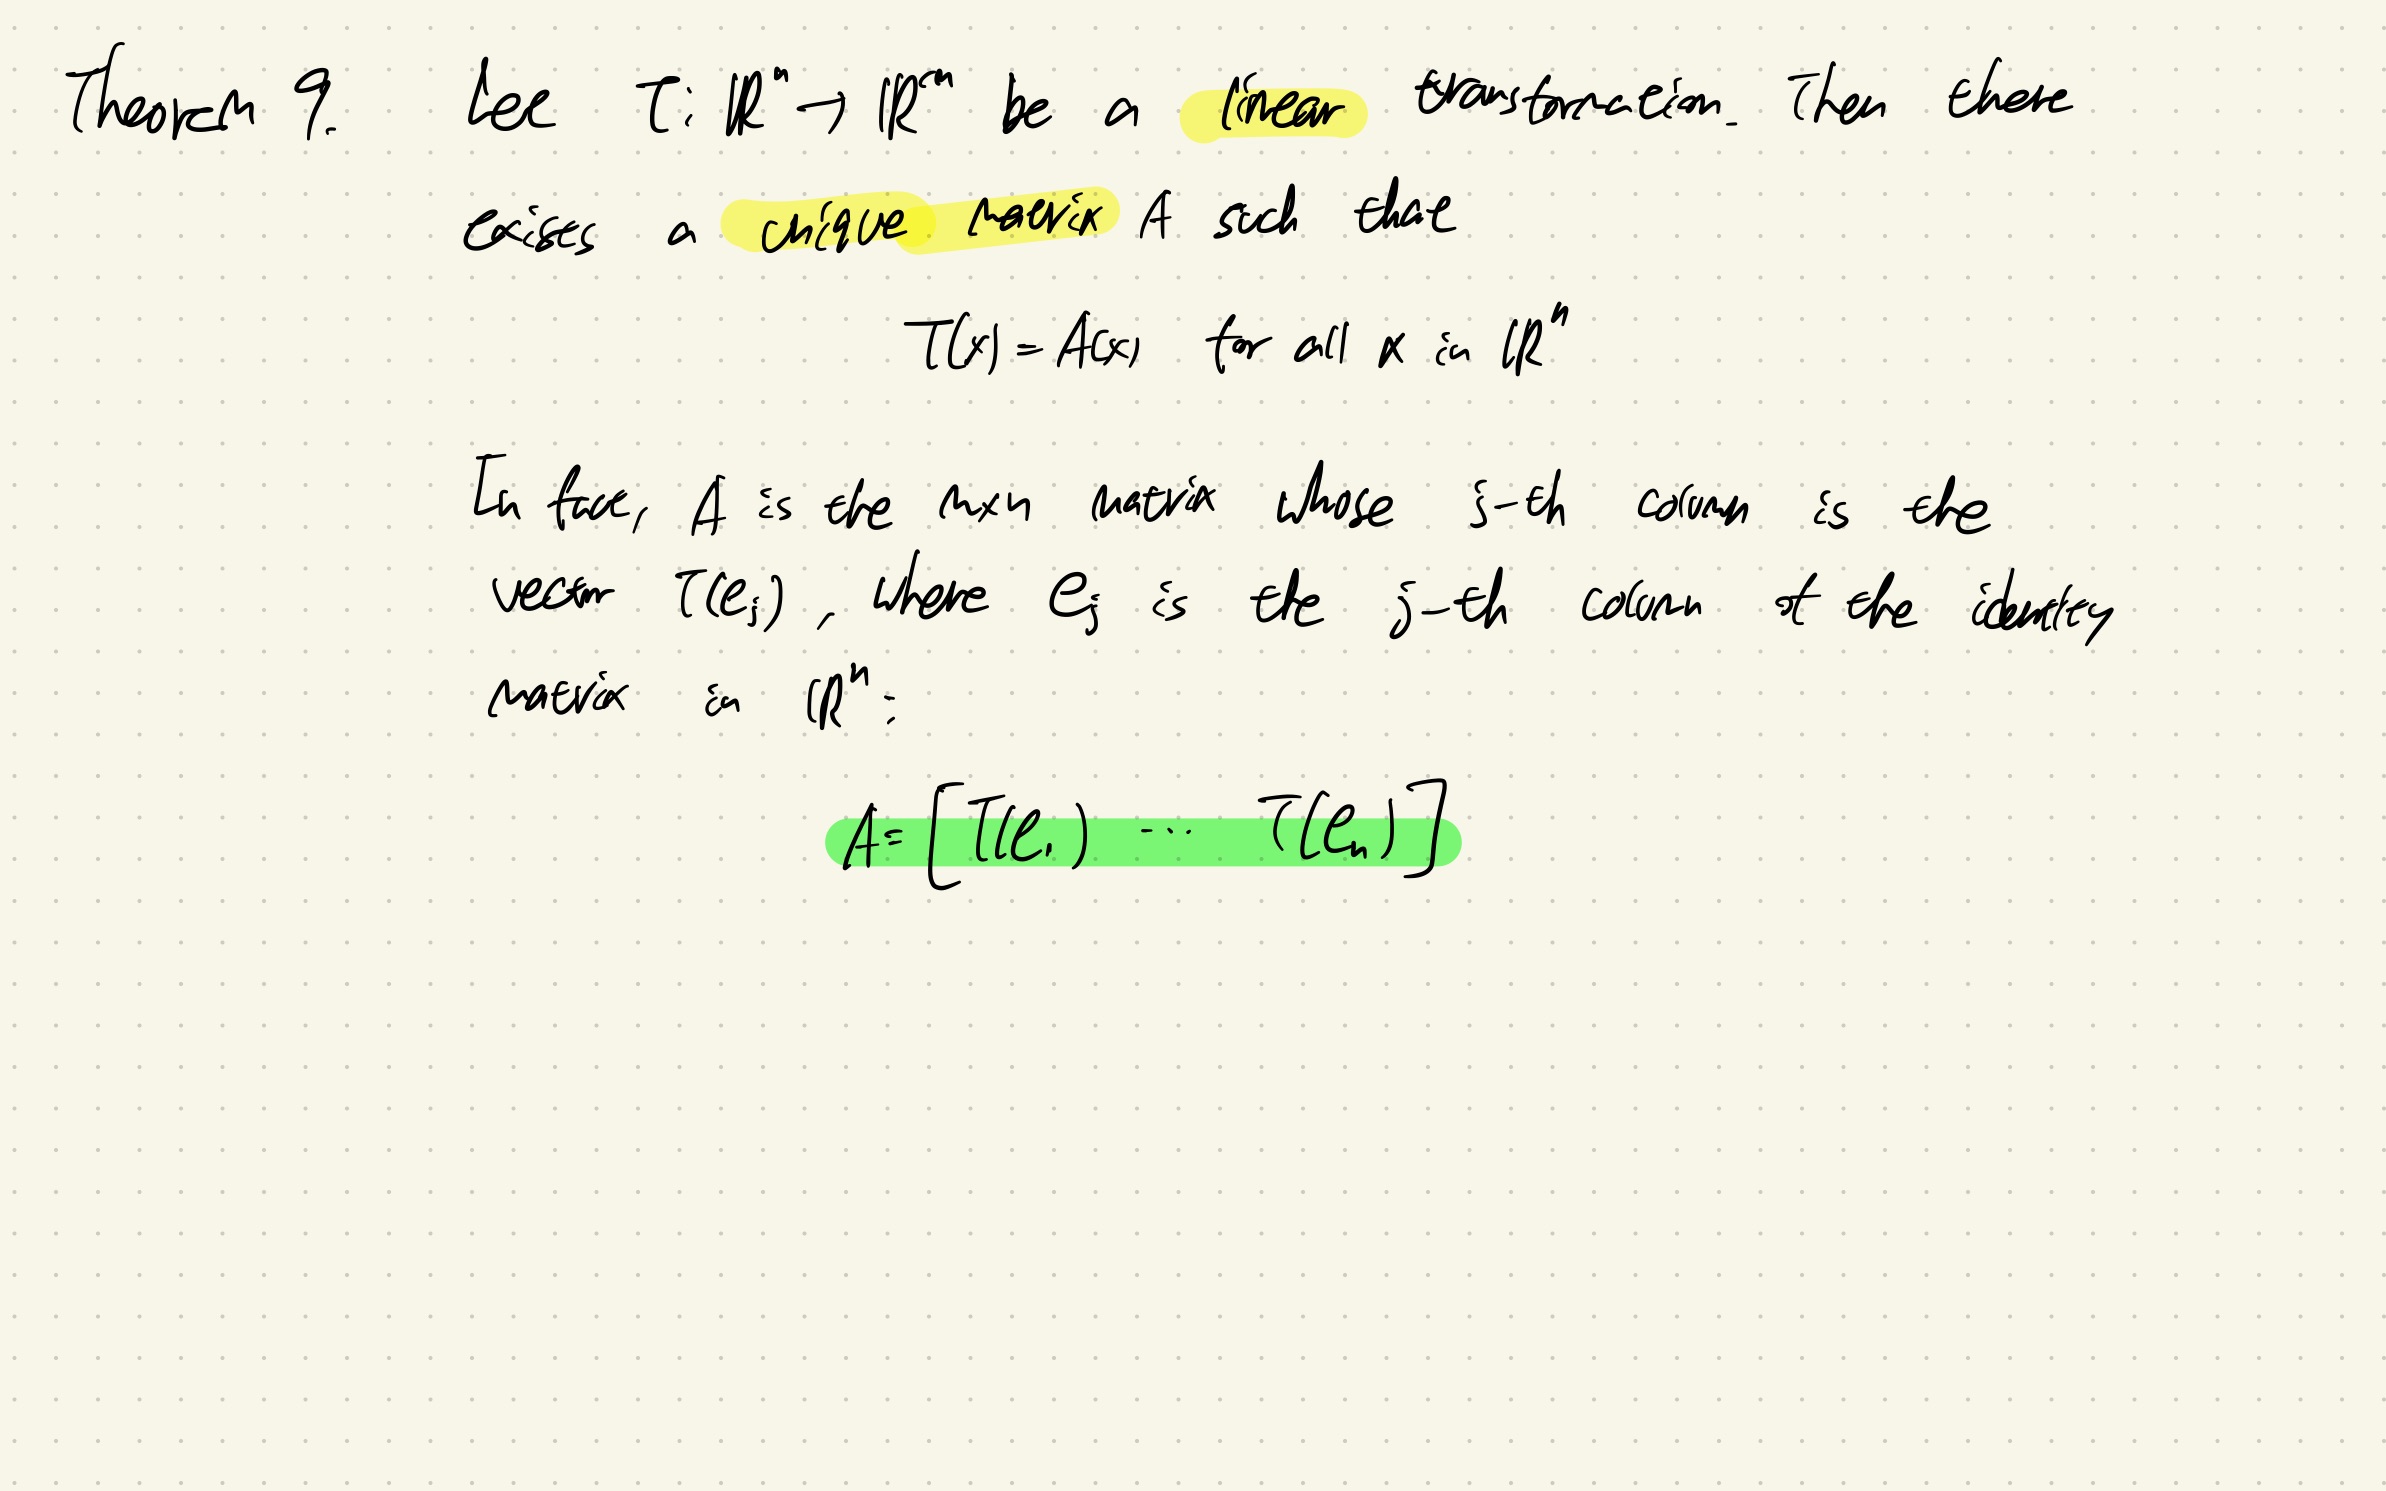 Theorem 9. Let T: ℝⁿ → ℝᵐ be a linear transformation. Then there
exists a unique matrix A such that
T(x) = A(x) for all x in ℝⁿ
In fact, A is the m×n matrix whose j-th column is the
vector T(eⱼ), where eⱼ is the j-th column of the identity
matrix in ℝⁿ:
A = [T(e₁) ... T(eₙ)]